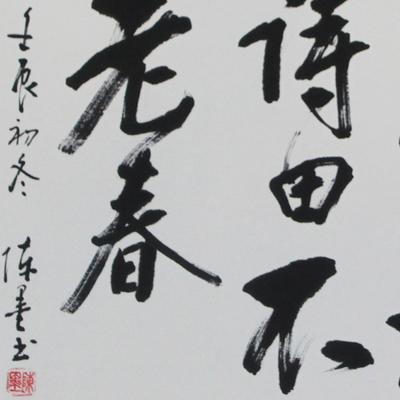 诗田不
老春
壬辰初冬 陈墨书
陳墨